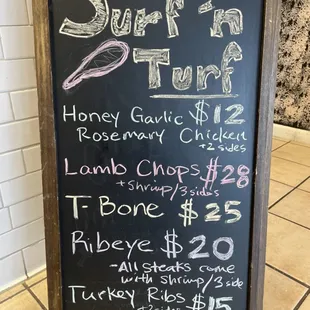 Surf 'n
Turf
Honey Garlic $12
Rosemary Chicken
+2 sides
Lamb Chops $28
+ Shrimp/3 sides
T-Bone $25
Ribeye $20
-All steaks come
with shrimp/3 side
Turkey Ribs $15